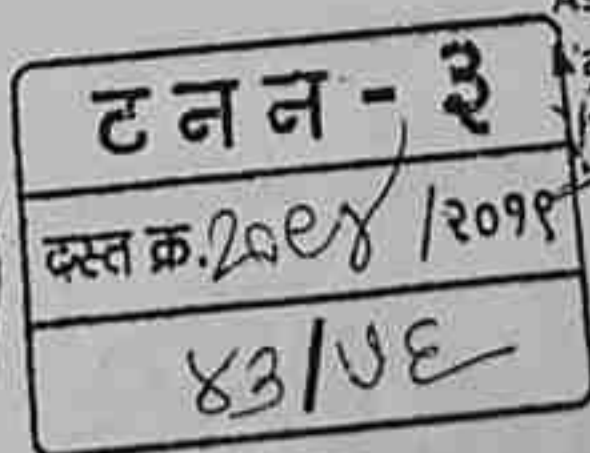 ट न न - ३
दस्त क्र. २०९४ /२०१९
४३/५६